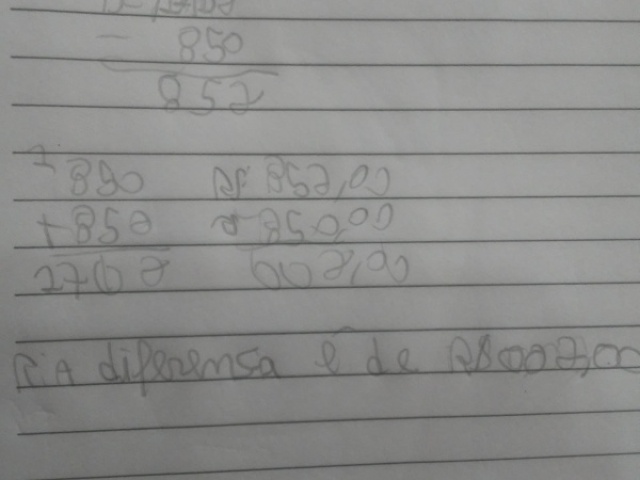 - 850
852
850 R$ 852,00
+ 852 - 850,00
002,00
R: A diferensa é de R$ 002,00